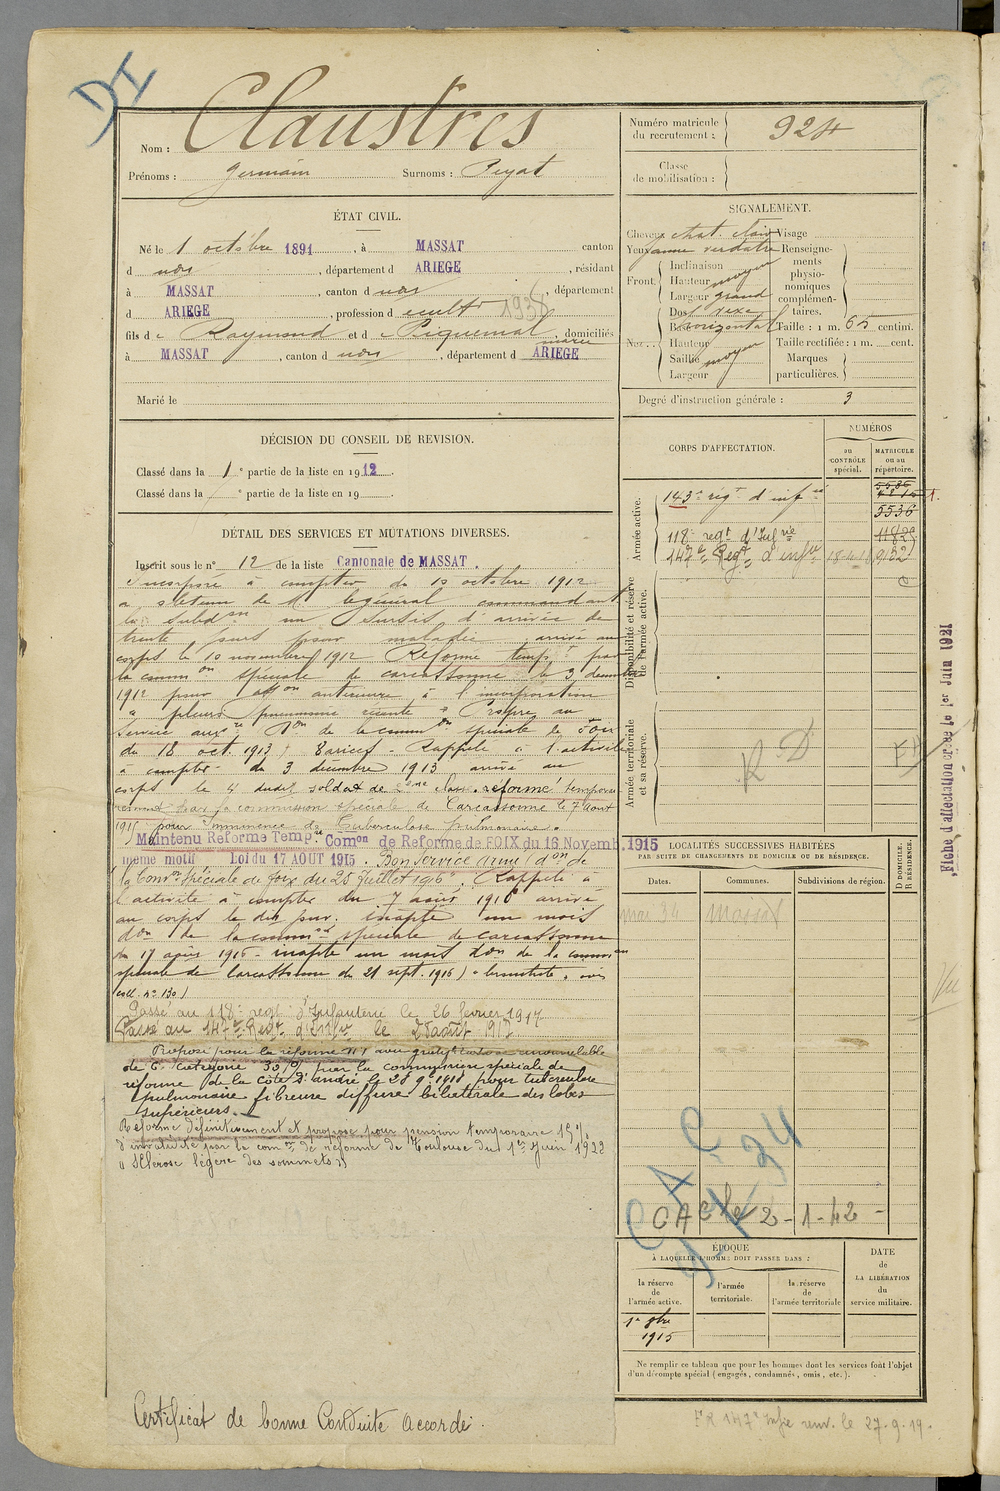 DI
Nom : Claustres
Prénoms : Germain Surnoms : Peyat
ÉTAT CIVIL.
Né le 1 octobre 1891, à MASSAT canton
d udu, département d ARIEGE, résidant
à MASSAT, canton d udu, département
d ARIEGE, profession d cultr 1938
fils de Raymond et de Piquemal marie, domiciliés
à MASSAT, canton d udu, département d ARIEGE
Marié le
DÉCISION DU CONSEIL DE REVISION.
Classé dans la 1e partie de la liste en 1912.
Classé dans la e partie de la liste en 19
DÉTAIL DES SERVICES ET MUTATIONS DIVERSES.
Inscrit sous le n° 12 de la liste Cantonale de MASSAT.
Incorporé à compter du 10 octobre 1912
a obtenu de M. le général commandant
la subdon un sursis d'arrivée de
trente jours pour maladie arrivé au
corps le 10 novembre 1912 Réformé tempre par
la common spéciale de carcassonne le 3 décembre
1912 pour affon antérieure à l'incorporation
" pleuro pneumonie récente " Propre au
service auxre Don de la common spéciale de Foix
du 18 oct. 1913) Varices - Rappelé à l'activité
à compter du 3 décembre 1913 arrivé au
corps le 4 dudit, soldat de 2eme classe. réformé temporai
rement par la commission spéciale de Carcassonne le 7 aout
1915 pour imminence de Tuberculose pulmonaire.
Maintenu Reforme Tempre Comon de Reforme de FOIX du 16 Novemb. 1915
même motif Loi du 17 AOUT 1915. Bon service armé (don de
la Comon Spéciale de Foix du 25 Juillet 1916). Rappelé à
l'activité à compter du 7 août 1916 arrivé
au corps le dit jour. inapte un mois
don de la common spéciale de carcassonne
du 17 août 1916 - inapte un mois don de la common
spéciale de Carcassonne du 21 sept. 1916) " bronchite " avis
coll. n° 130)
Passé au 118e regt d'Infanterie le 26 février 1917
Passé au 147e Regt d'Infre le 25 août 1917
Proposé pour la réforme N°1 avec gratifon renouvelable
de 6e catégorie 30% par la commission spéciale de
réforme de la côte St andré le 28 9e 1918 pour tuberculose
pulmonaire fibreuse diffuse bilatérale des lobes
supérieurs.
Réformé définitivement et proposé pour pension temporaire 15%
d'invalidité par la comon de réforme de Toulouse du 1er Juin 1922
" Sclérose légère des sommets "
Certificat de bonne Conduite accordé.
Numéro matricule du recrutement : 924
Classe de mobilisation :
SIGNALEMENT.
Cheveux chat. clair Visage
Yeux jaune verdâtre Renseigne-
ments
physio-
nomiques
complémen-
taires.
Front. Inclinaison
Hauteur moyen
Largeur grand
Nez. Dos vexe
Base horizontal Taille : 1 m. 65 centim.
Hauteur Taille rectifiée : 1 m. cent.
Saillie moyen Marques
Largeur particulières.
Degré d'instruction générale : 3
CORPS D'AFFECTATION.
NUMÉROS
au CONTRÔLE spécial.
MATRICULE ou au répertoire.
Armée active.
143e régt d'infrie 5536
5536
118e regt d'Infrie 11829
147e Regt d'Infrie 9152
Disponibilité et réserve de l'armée active.
Armée territoriale et sa réserve.
R D
Fiche d'affectation créée le 1er Juin 1921
LOCALITÉS SUCCESSIVES HABITÉES
PAR SUITE DE CHANGEMENTS DE DOMICILE OU DE RÉSIDENCE.
Dates. Communes. Subdivisions de région. D DOMICILE. R RÉSIDENCE.
mai 34 Massat
Vu
C A C
CAC le 2-1-42 -
ÉPOQUE
À LAQUELLE L'HOMME DOIT PASSER DANS :
la réserve de l'armée active.
l'armée territoriale.
la réserve de l'armée territoriale
DATE de LA LIBÉRATION du service militaire.
1er 8bre
1915
Ne remplir ce tableau que pour les hommes dont les services font l'objet
d'un décompte spécial (engagés, condamnés, omis, etc.).
FR 147e Infie renv. le 27-9-19-